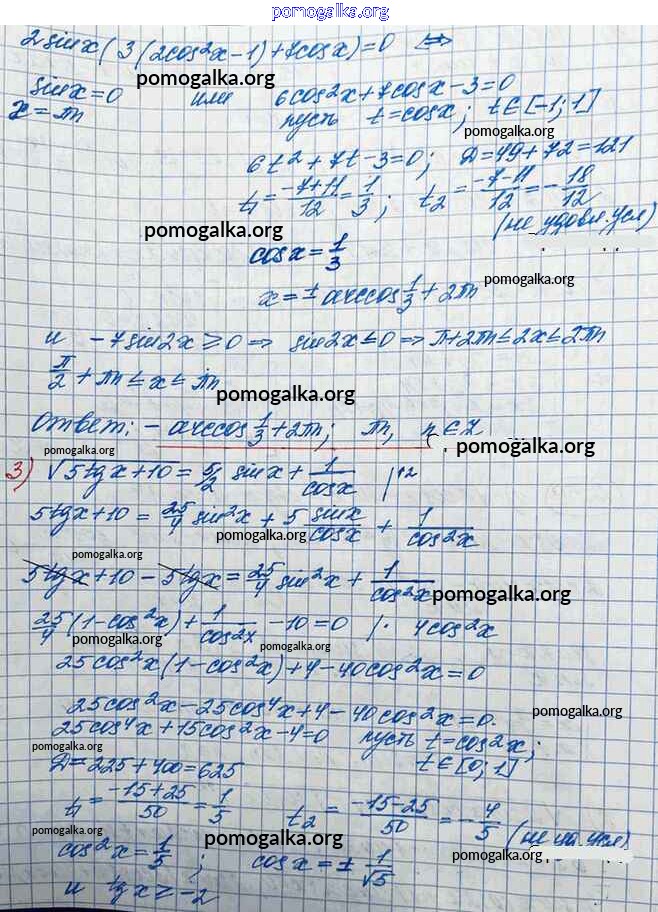 pomogalka.org
2sinx(3(2cos²x-1)+7cosx)=0 ⇔
pomogalka.org
sinx=0 или 6cos²x+7cosx-3=0
x=πn пусть t=cosx; t∈[-1;1]
pomogalka.org
6t²+7t-3=0; D=49+72=121
t₁=(-7+11)/12=1/3; t₂=(-7-11)/12=-18/12
pomogalka.org (не удовл. усл)
cosx=1/3
pomogalka.org
x=±arccos 1/3+2πn
и -7sin2x≥0⇒ sin2x≤0⇒π+2πn≤2x≤2πn
π/2+πn≤x≤πn
pomogalka.org
Ответ: -arccos 1/3+2πn; πn, n∈Z
pomogalka.org pomogalka.org
3) √(5tgx+10)=5/2 sinx+1/cosx |↑2
pomogalka.org
5tgx+10=25/4 sin²x+5 sinx/cosx+1/cos²x
pomogalka.org
pomogalka.org
5tgx+10-5tgx=25/4 sin²x+1/cos²x
pomogalka.org
25/4(1-cos²x)+1/cos²x-10=0 |· 4cos²x
pomogalka.org pomogalka.org
25cos²x(1-cos²x)+4-40cos²x=0
25cos²x-25cos⁴x+4-40cos²x=0.
pomogalka.org
25cos⁴x+15cos²x-4=0 пусть t=cos²x;
pomogalka.org
D=225+400=625 t∈[0;1]
t₁=(-15+25)/50=1/5 t₂=(-15-25)/50=-4/5
pomogalka.org pomogalka.org pomogalka.org
cos²x=1/5; cosx=±1/√5
pomogalka.org
и tgx≥-2